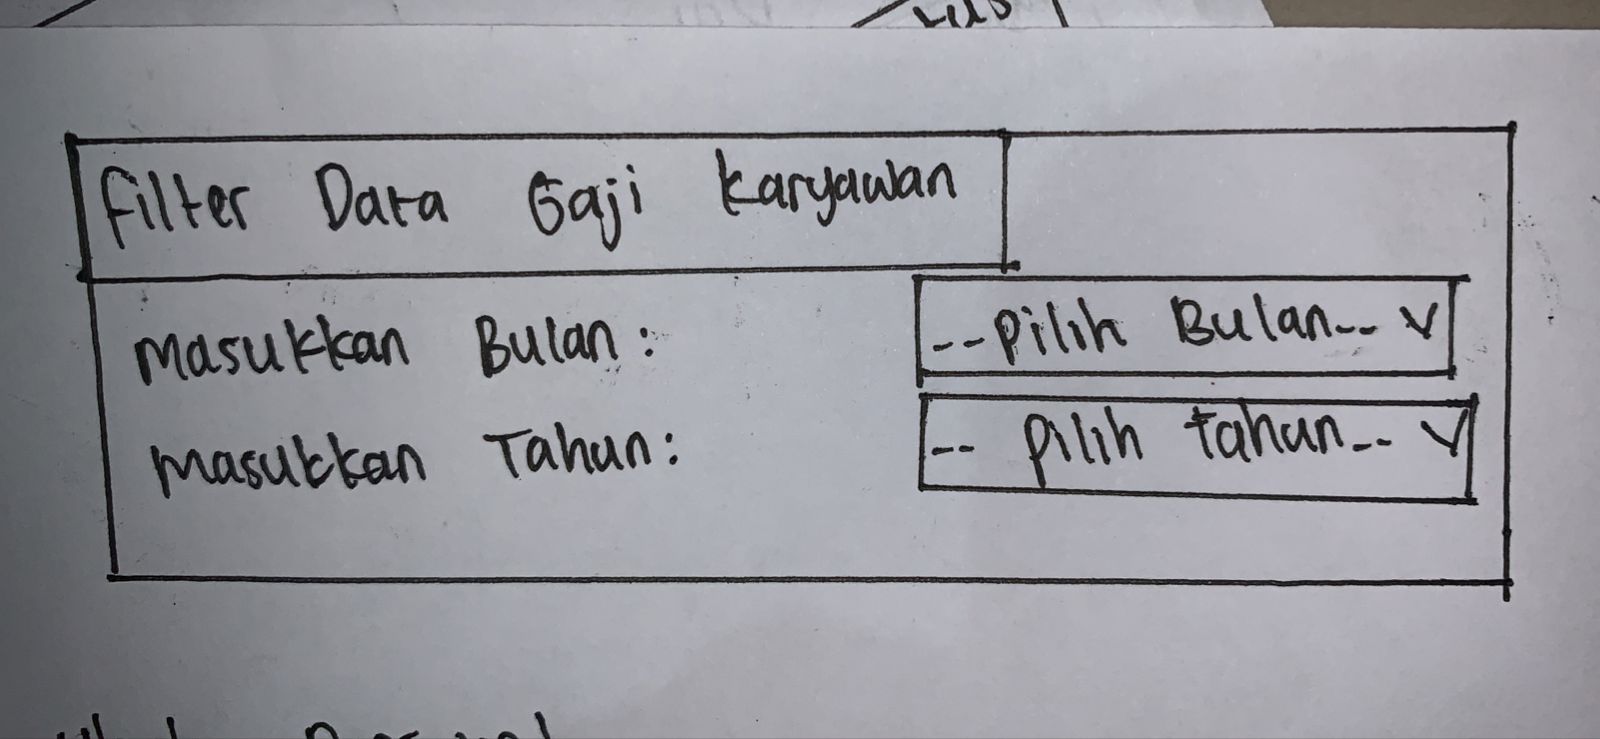 Filter Data Gaji Karyawan
Masukkan Bulan:
--Pilih Bulan-- v
Masukkan Tahun:
-- Pilih tahun-- v